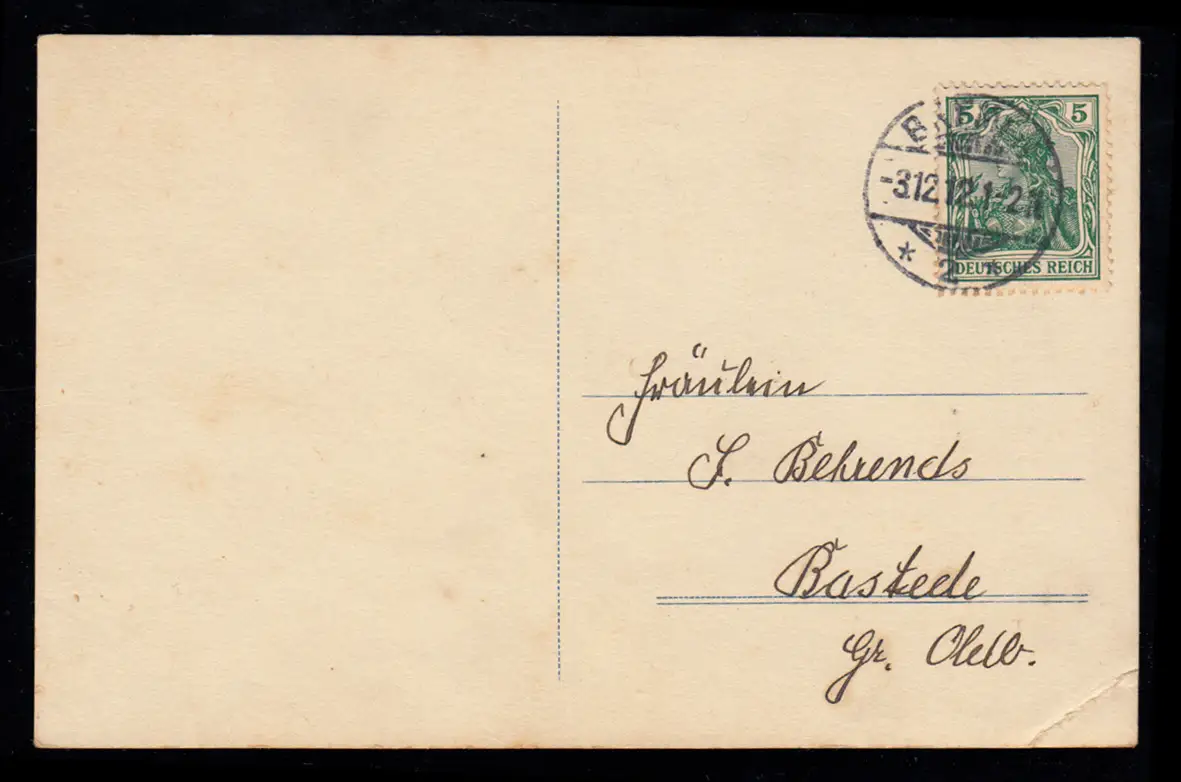 5 5
-3.12.12.1-2N
* 2 *
DEUTSCHES REICH
Fräulein
F. Behrends
Rastede
Gr. Oldb.